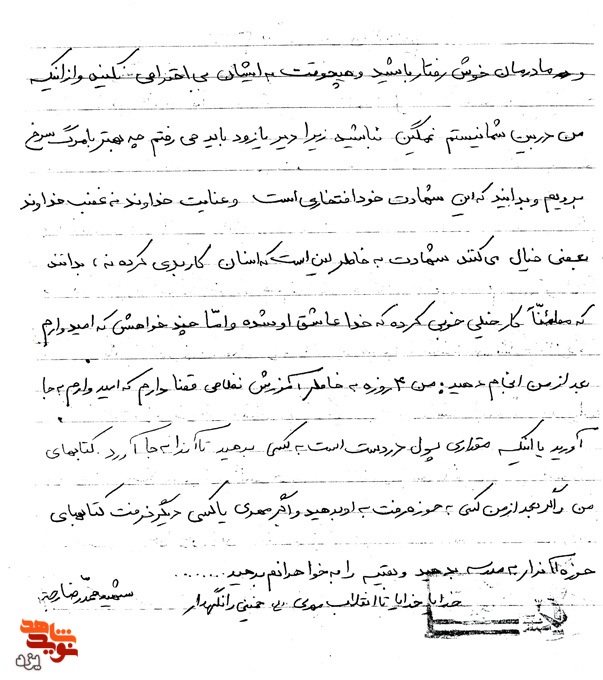 و مادرمان خوش رفتار باشید و هیچوقت به ایشان بی احترامی نکنید و از اینکه
من در بین شما نیستم غمگین نباشید زیرا دیر یا زود باید می رفتم چه بهتر با مرگ سرخ
برویم و بدانید که این شهادت خود افتخاری است و عنایت خداوند نه غضب خداوند
بعضی خیال می کنند شهادت به خاطر این است که انسان کار بدی کرده نه، بدانند
که مطمئناً کار خیلی خوبی کرده که خدا عاشق او شده و امّا چند خواهش که امیدوارم
بعد از من انجام دهید: من ۴ روزه به خاطر آموزش نظامی قضا دارم که امیدوارم به جا
آورید یا اینکه مقداری پول در دست است به کسی بدهید تا آنرا به جا آورد. کتابهای
من اگر بعد از من کسی به حوزه رفت به او بدهید و اگر مهدی یا کسی دیگر نرفت کتابهای
حوزه را به مدرسه بدهید و بقیه را به خواهرانم بدهید.......
خدایا خدایا تا انقلاب مهدی خمینی را نگهدار
شهید محمدرضا
شاهد
نوید
یزد